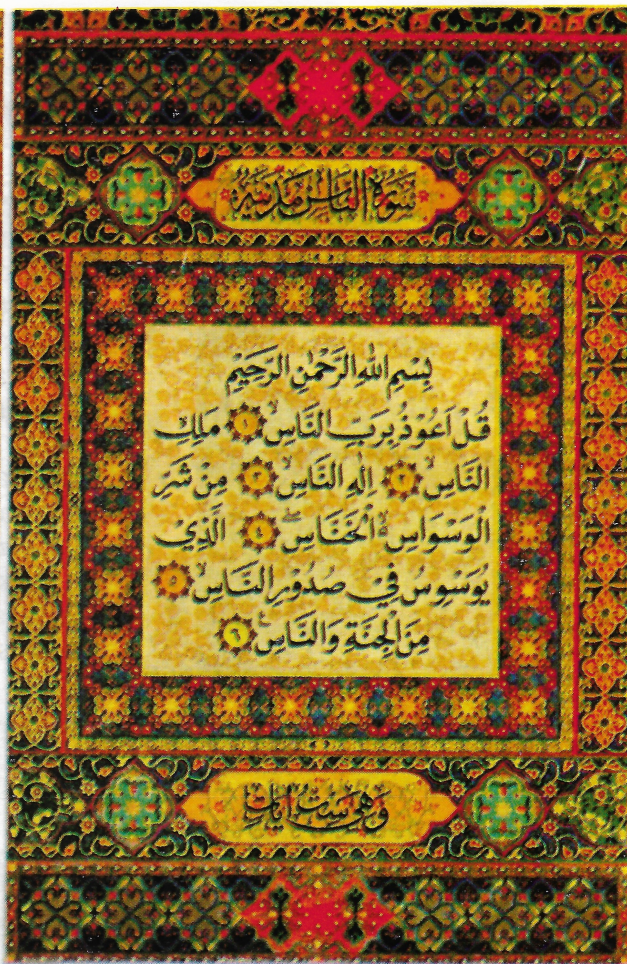 سُورَةُ النَّاسِ مَدَنِيَّةٌ
بِسْمِ اللهِ الرَّحْمٰنِ الرَّحِيْمِ
قُلْ اَعُوْذُ بِرَبِّ النَّاسِۙ ١ مَلِكِ
النَّاسِۙ ٢ اِلٰهِ النَّاسِۙ ٣ مِنْ شَرِّ
الْوَسْوَاسِ ۙ الْخَنَّاسِ ۖ ٤ الَّذِيْ
يُوَسْوِسُ فِيْ صُدُوْرِ النَّاسِۙ ٥
مِنَ الْجِنَّةِ وَالنَّاسِ ۚ ٦
وَهِيَ سِتُّ اٰيَاتٍ